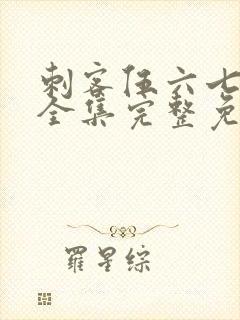 刺客伍六七
全集完整免
羅星綜